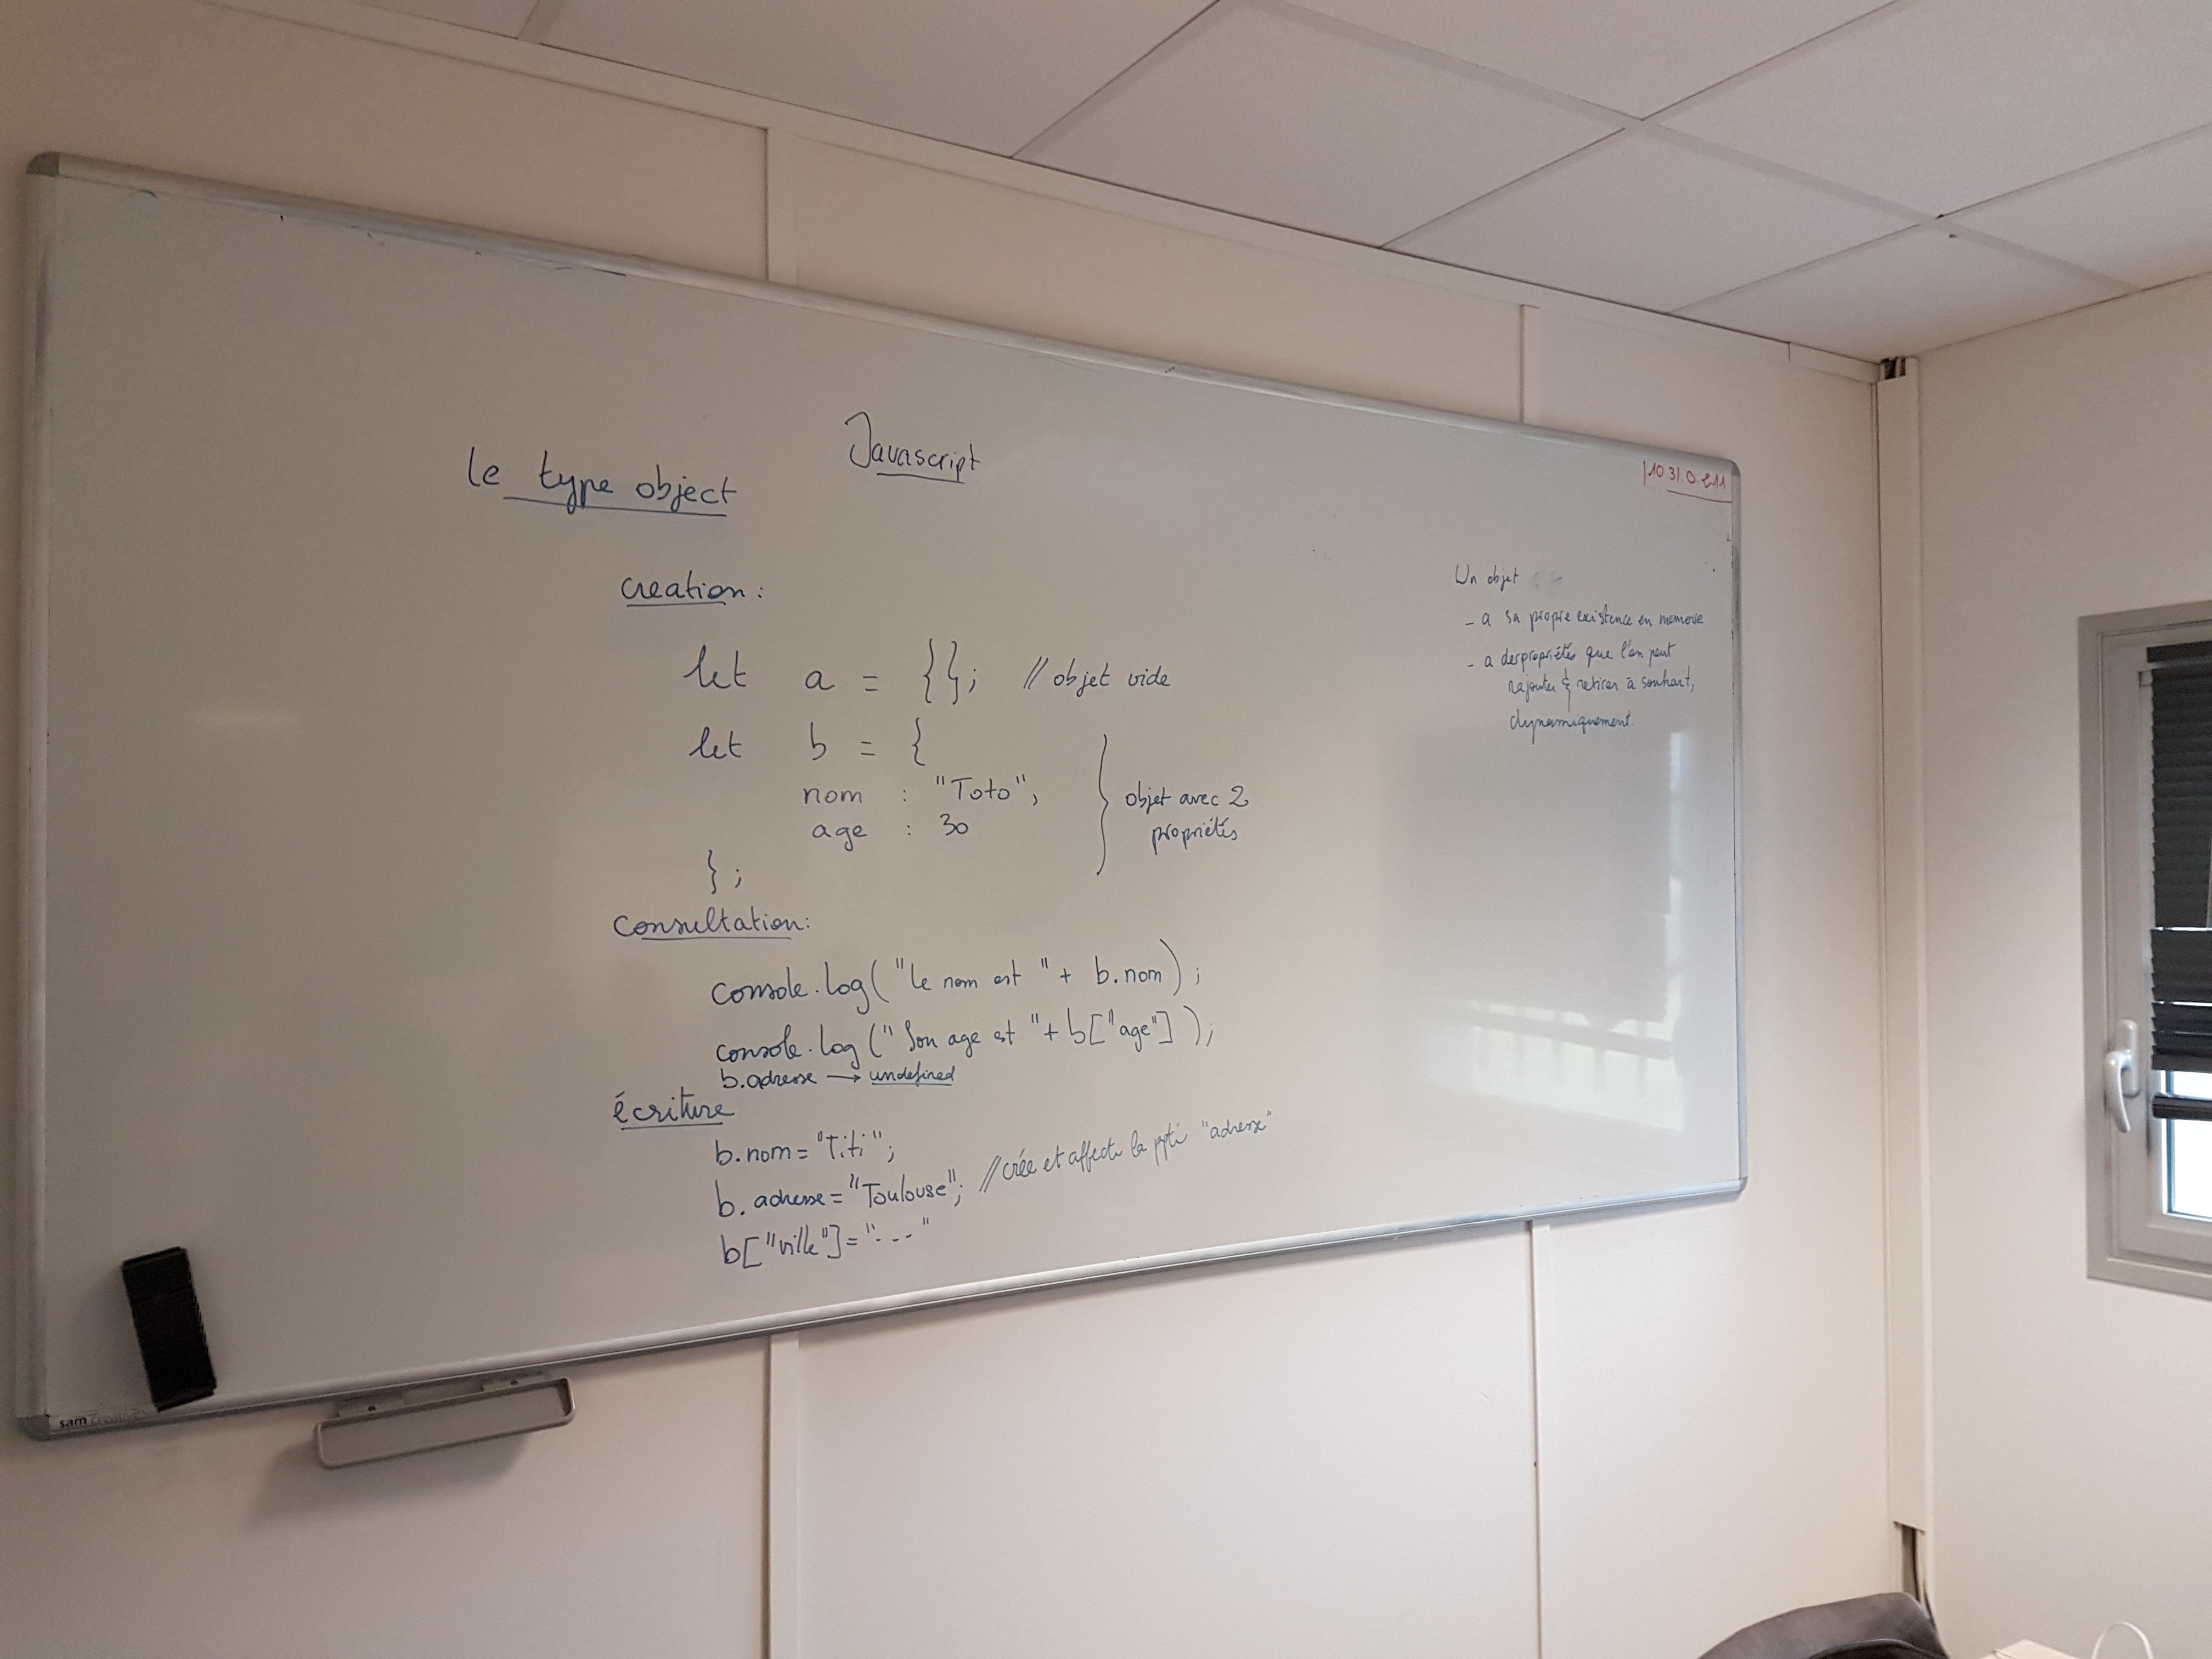 Javascript
le type object
10.31.0.211
creation:
let a = {}; // objet vide
let b = {
nom : "Toto",
age : 30
};
objet avec 2
propriétés
consultation:
console.log("le nom est "+ b.nom);
console.log("Son age est "+ b["age"]);
b.adresse → undefined
écriture
b.nom = "Titi";
b.adresse = "Toulouse"; // crée et affecte la ppté "adresse"
b["ville"] = "---"
Un objet
- a sa propre existence en memoire
- a des propriétés que l'on peut
rajouter & retirer à souhait,
dynamiquement.
sam